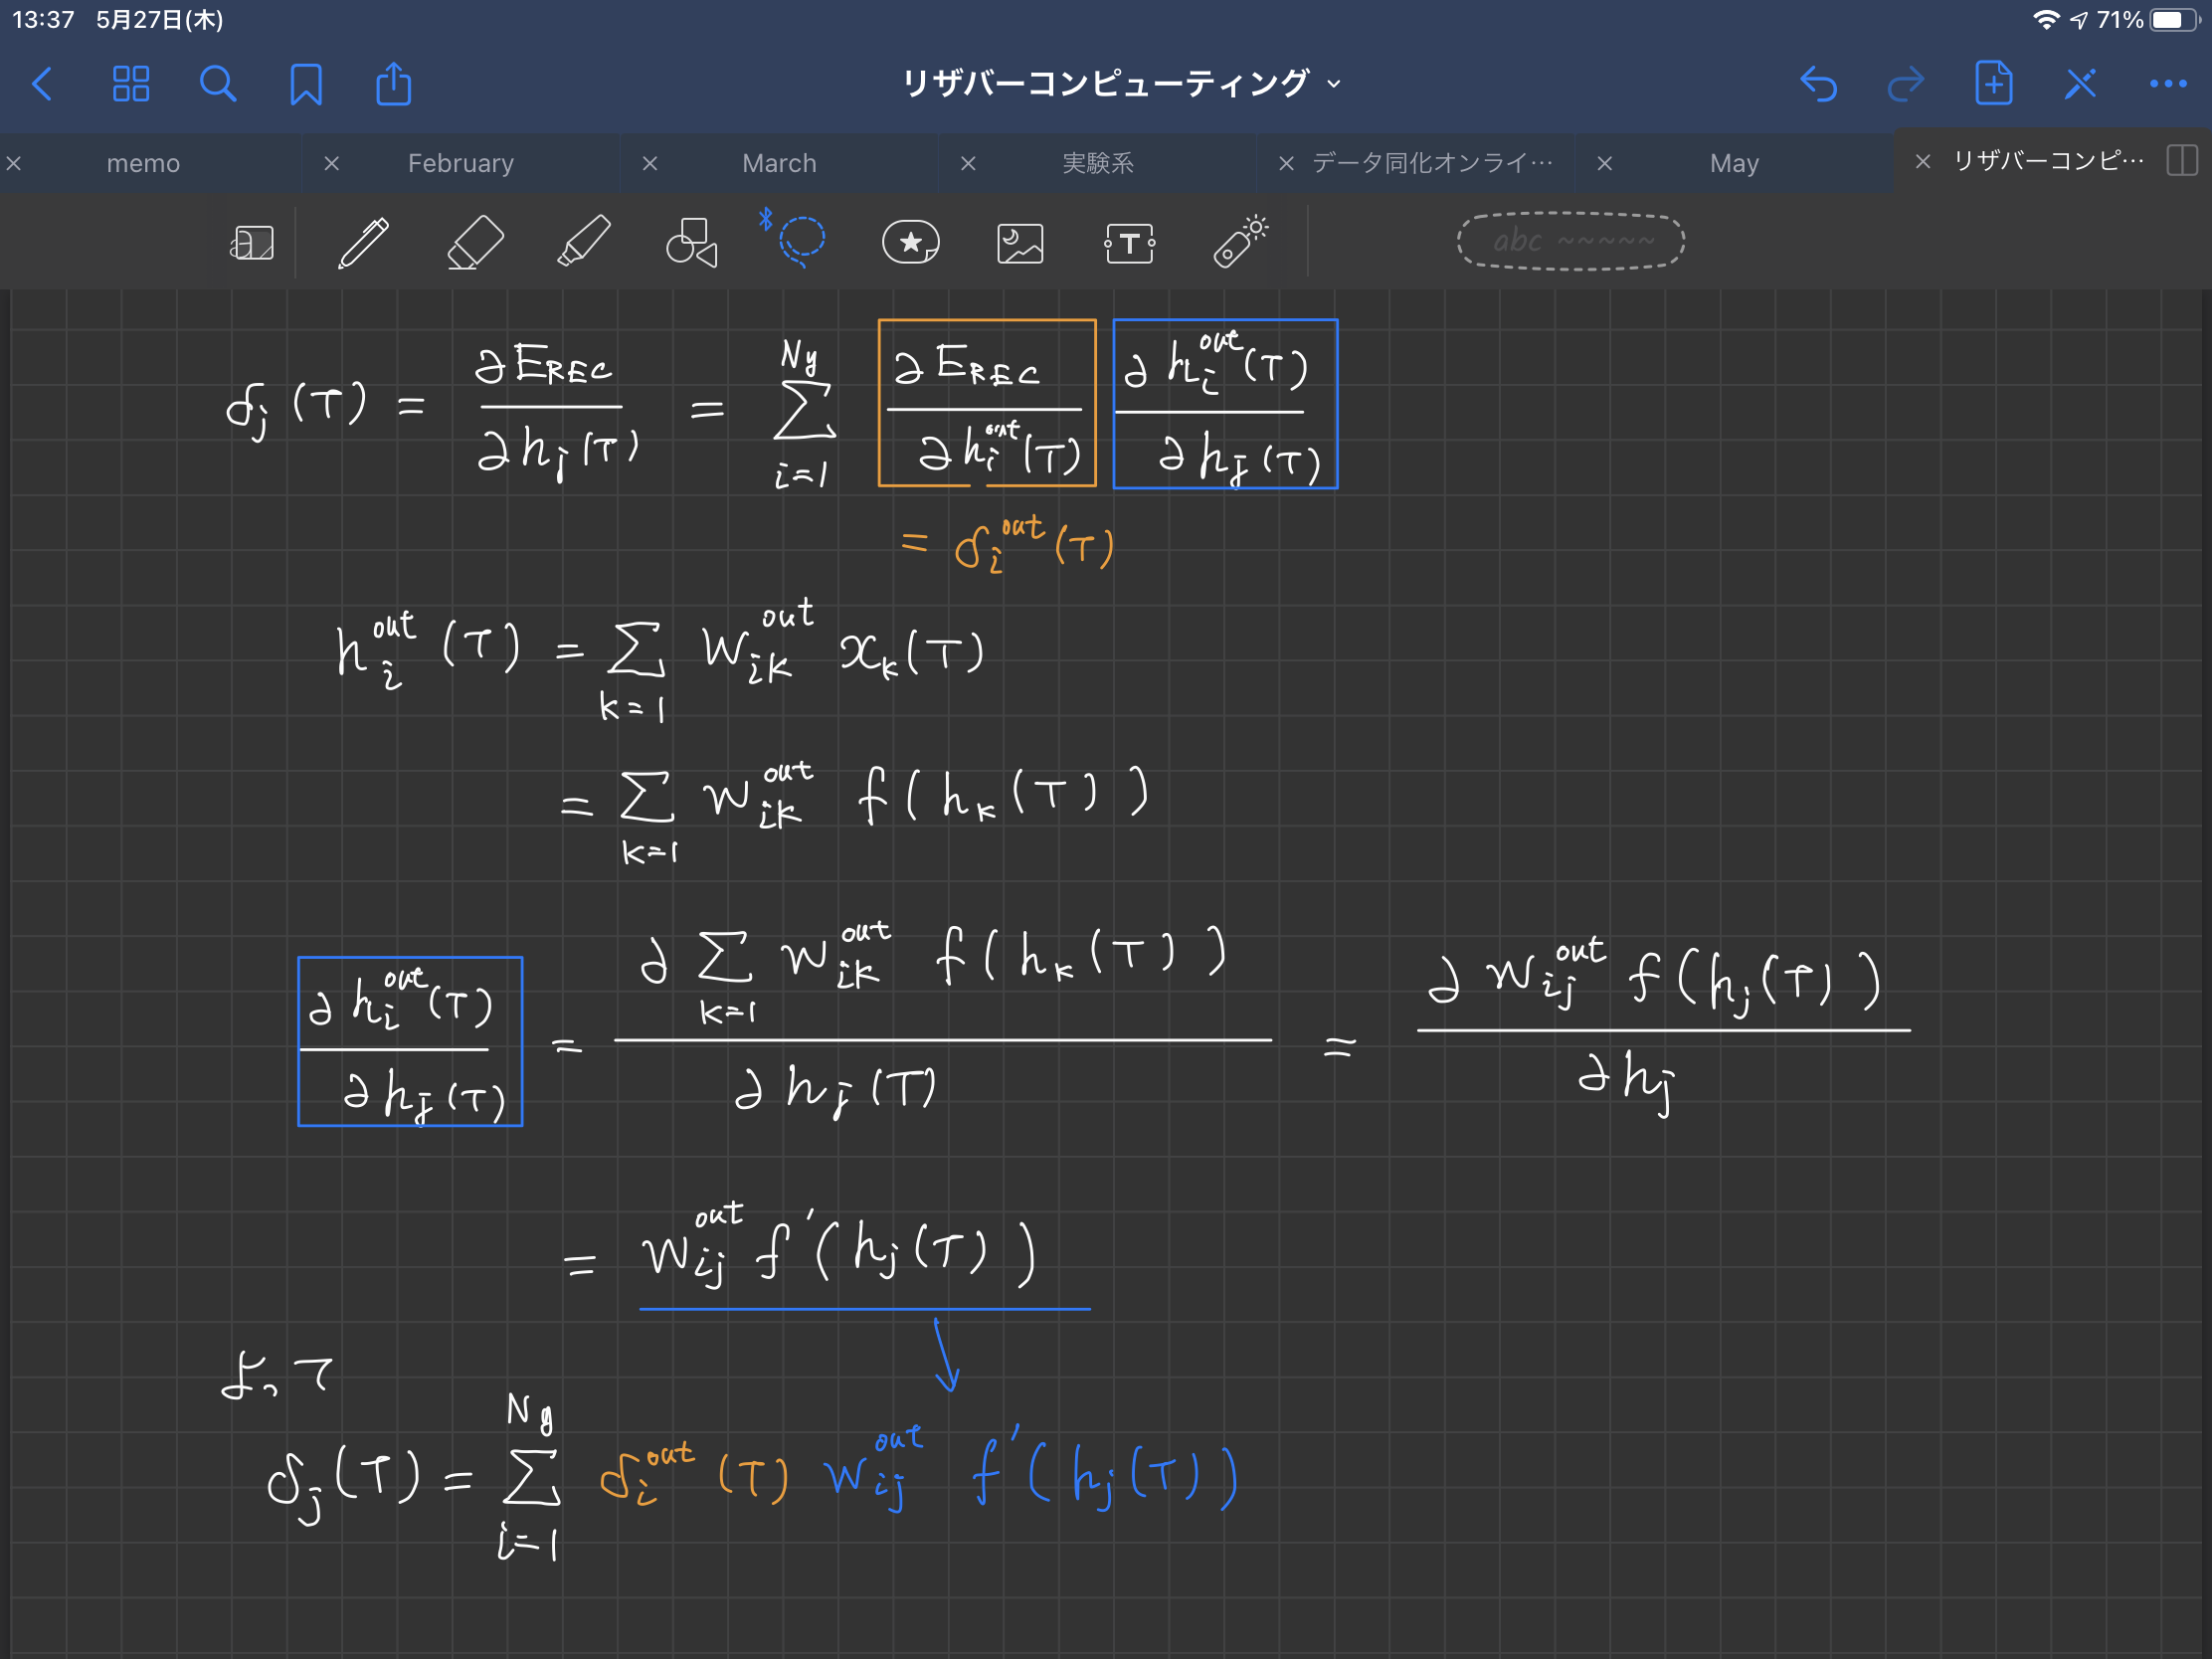 13:37 5月27日(木) 71%
リザバーコンピューティング
memo February March 実験系 データ同化オンライ… May リザバーコンピ…
abc ~~~~~
δj(T) = ∂E_REC / ∂hj(T) = Σ_{i=1}^{Ny} ∂E_REC / ∂hi^out(T) ∂hi^out(T) / ∂hj(T)
= δi^out(T)
hi^out(T) = Σ_{k=1} Wik^out xk(T)
= Σ_{k=1} Wik^out f(hk(T))
∂hi^out(T) / ∂hj(T) = ∂ Σ_{k=1} Wik^out f(hk(T)) / ∂hj(T) = ∂ Wij^out f(hj(T)) / ∂hj
= Wij^out f'(hj(T))
よって
δj(T) = Σ_{i=1}^{Ny} δi^out(T) Wij^out f'(hj(T))